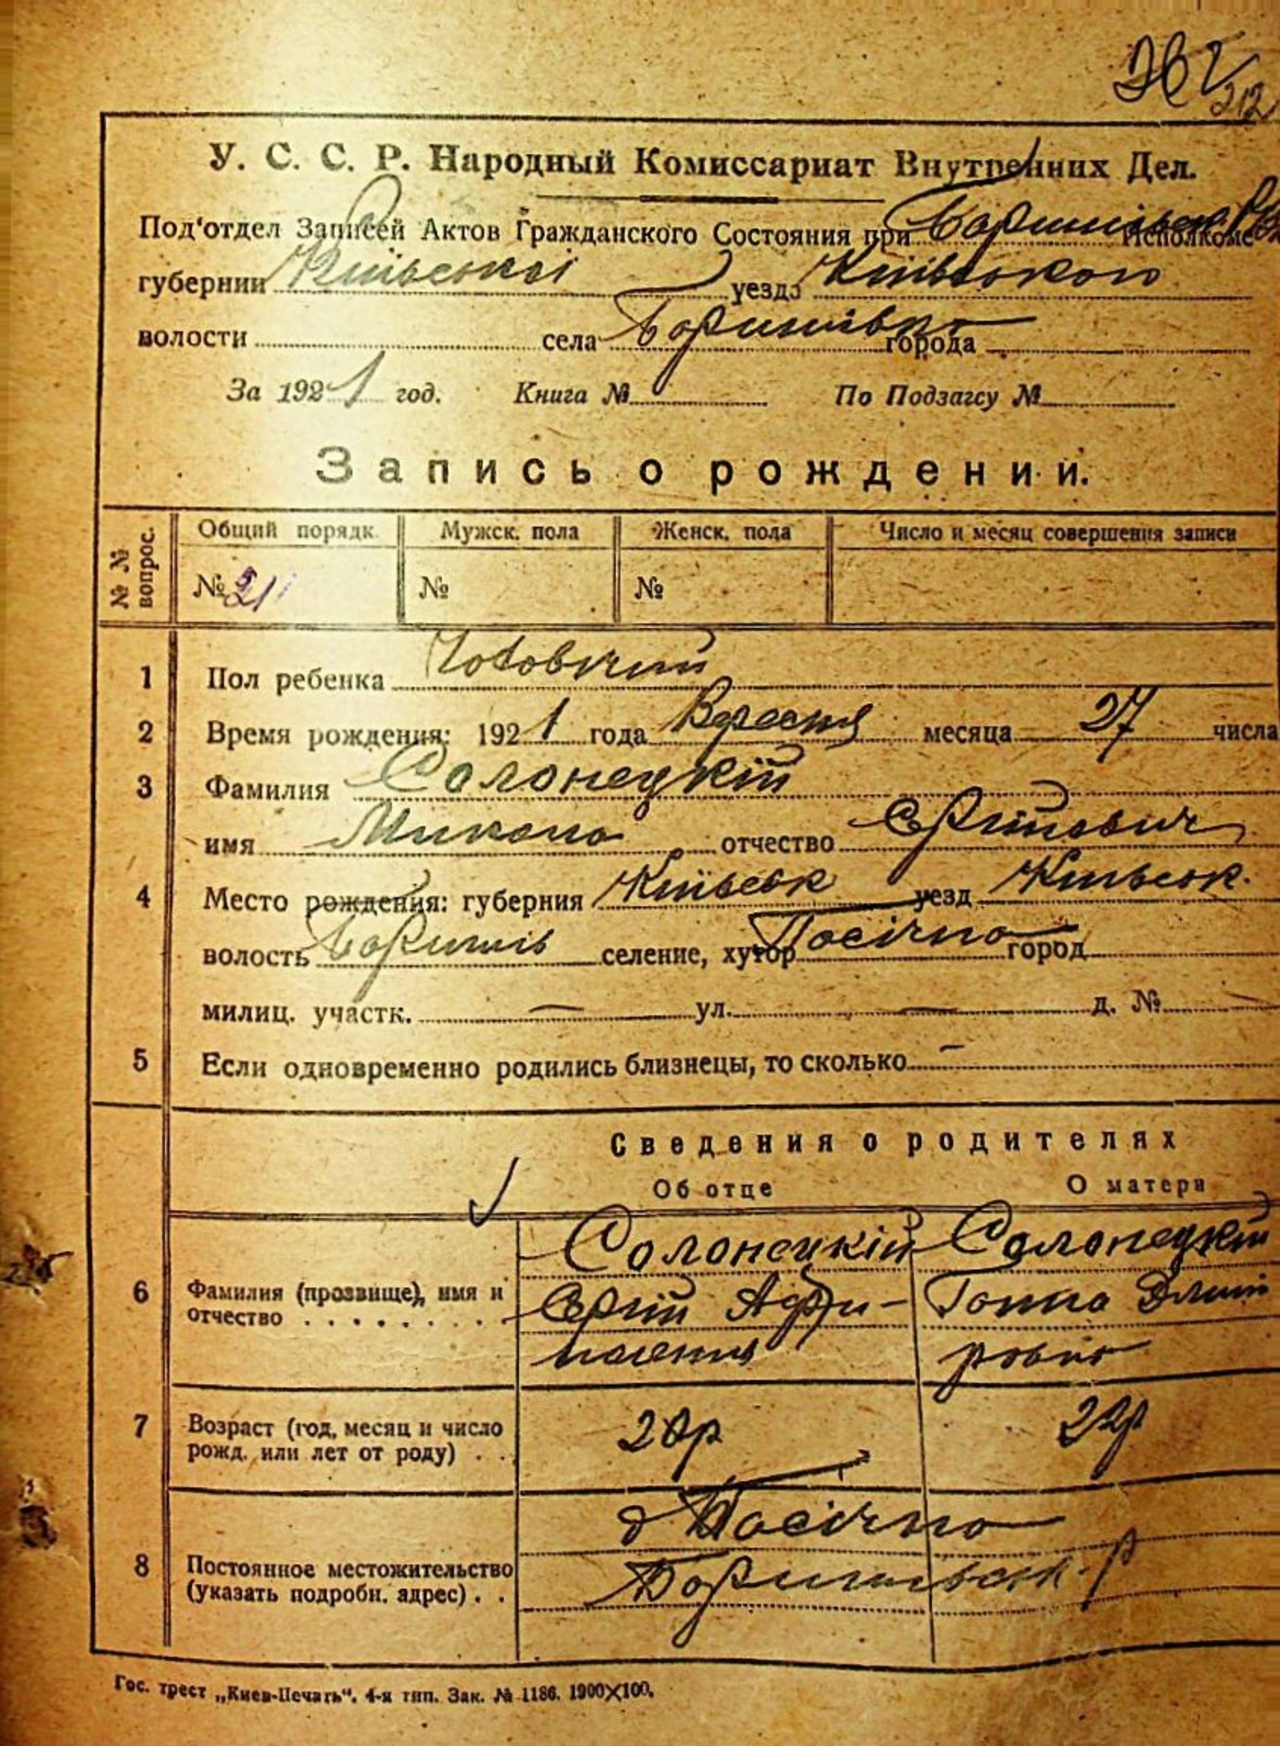 212
У. С. С. Р. Народный Комиссариат Внутренних Дел.
Под'отдел Записей Актов Гражданского Состояния при Исполкоме
губернии Київської уезда Київського
волости села города
За 1921 год. Книга № По Подзагсу №
Запись о рождении.
№ № вопрос. Общий порядк. Мужск. пола Женск. пола Число и месяц совершения записи
№ № №
1 Пол ребенка Чоловічий
2 Время рождения: 1921 года Вересня месяца 27 числа
3 Фамилия Солонецкій
имя Микола отчество Сергійович
4 Место рождения: губерния Київськ уезд Київськ.
волость Боришпіль селение, хутор Пасічна город
милиц. участк. — ул. — д. №
5 Если одновременно родились близнецы, то сколько —
Сведения о родителях
Об отце О матери
Солонецкій Солонецкій
6 Фамилия (прозвище), имя и отчество Сергій Ганна
7 Возраст (год, месяц и число рожд. или лет от роду) . . 22р
д Пасічна
8 Постоянное местожительство (указать подробн. адрес) . . Боришпільськ. р
Гос. трест „Киев-Печать". 4-я тип. Зак. № 1186. 1900×100.